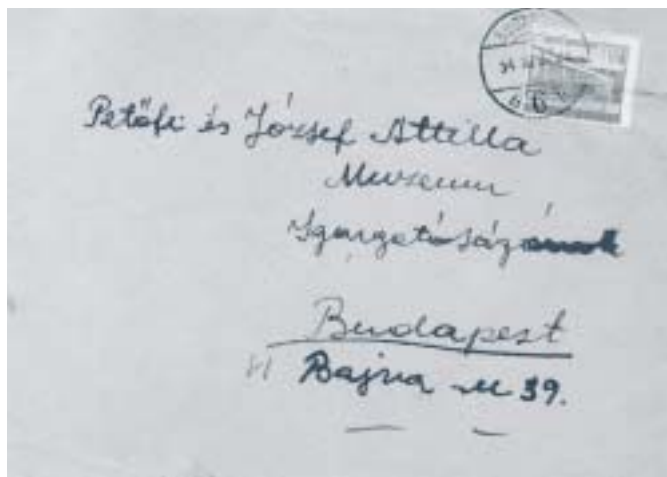 Petőfi és József Attilla
Muzeum
Igazgatóságának
Budapest
VI Bajza u 39.